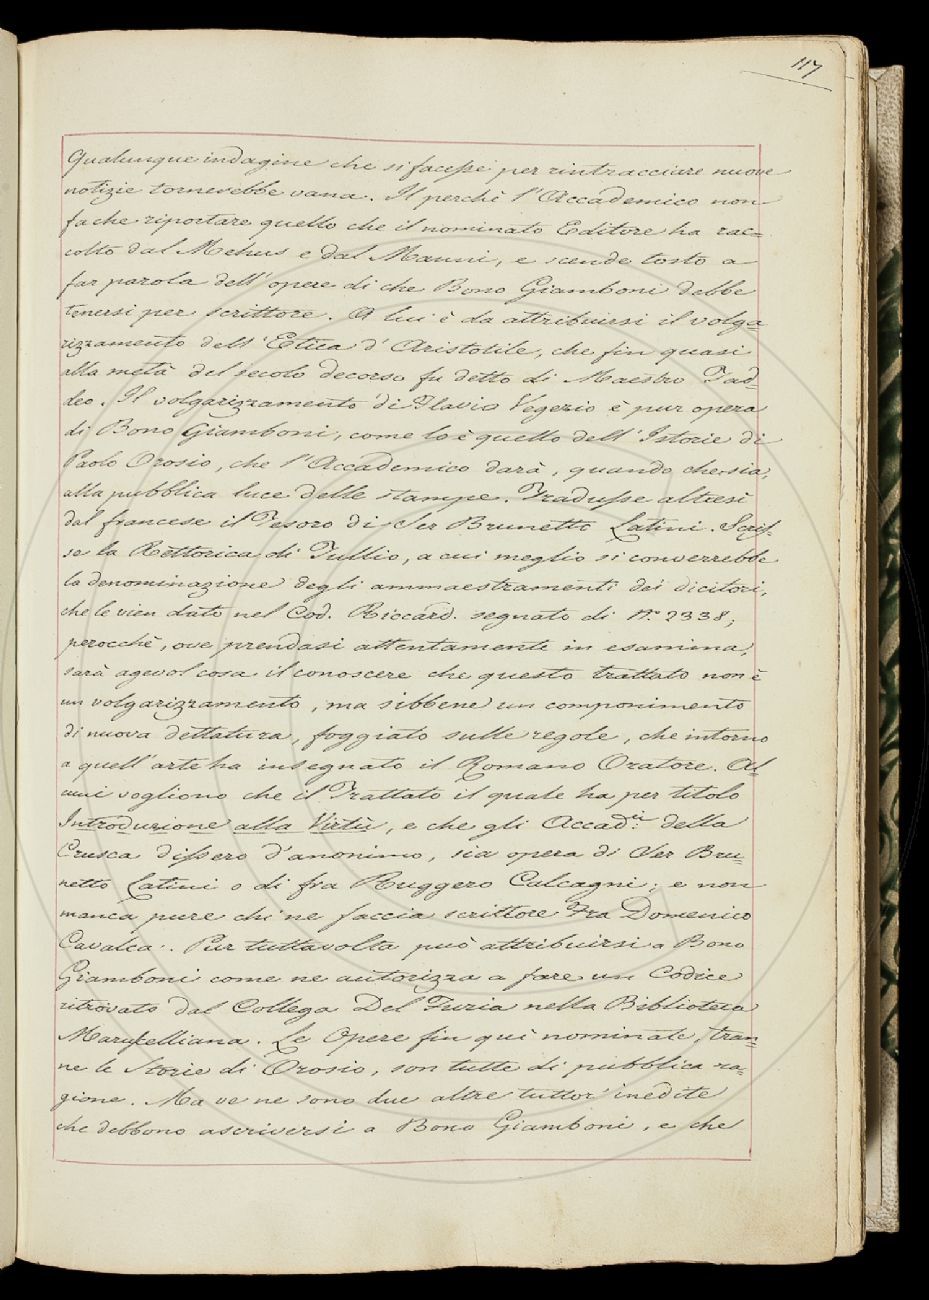 117
Qualunque indagine che si facesse per rintracciare nuove
notizie tornerebbe vana. Il perchè l'Accademico non
fa che riportare quello che il nominato Editore ha rac=
colto dal Mehus e dal Manni, e scende tosto a
far parola dell'opere di che Bono Giamboni debbe
tenersi per scrittore. A lui è da attribuirsi il volga=
rizzamento dell'Etica d'Aristotile, che fin quasi
alla metà del secolo decorso fu detto di Maestro Tad=
deo. Il volgarizzamento di Flavio Vegezio è pur opera
di Bono Giamboni, come lo è quello dell'Istorie di
Paolo Orosio, che l'Accademico darà, quando che sia,
alla pubblica luce delle stampe. Tradusse altresì
dal francese il Tesoro di Ser Brunetto Latini. Scris=
se la Rettorica di Tullio, a cui meglio si converrebbe
la denominazione degli ammaestramenti dei dicitori,
che le vien dato nel Cod. Riccard. segnato di N.° 2338;
perocchè, ove prendasi attentamente in esamina,
sarà agevol cosa il conoscere che questo trattato non è
un volgarizzamento, ma sibbene un componimento
di nuova dettatura, foggiato sulle regole, che intorno
a quell'arte ha insegnato il Romano Oratore. Al=
cuni vogliono che il Trattato il quale ha per titolo
Introduzione alla Virtù, e che gli Accad.ci della
Crusca dissero d'anonimo, sia opera di Ser Bru=
netto Latini o di fra Ruggero Calcagni; e non
manca pure chi ne faccia scrittore Fra Domenico
Cavalca. Pur tuttavolta può attribuirsi a Bono
Giamboni come ne autorizza a fare un Codice
ritrovato dal Collega Del Furia nella Biblioteca
Marucelliana. Le Opere fin quì nominate, tran=
ne le Storie di Orosio, son tutte di pubblica ra=
gione. Ma ve ne sono due altre tuttor inedite
che debbono ascriversi a Bono Giamboni, e che